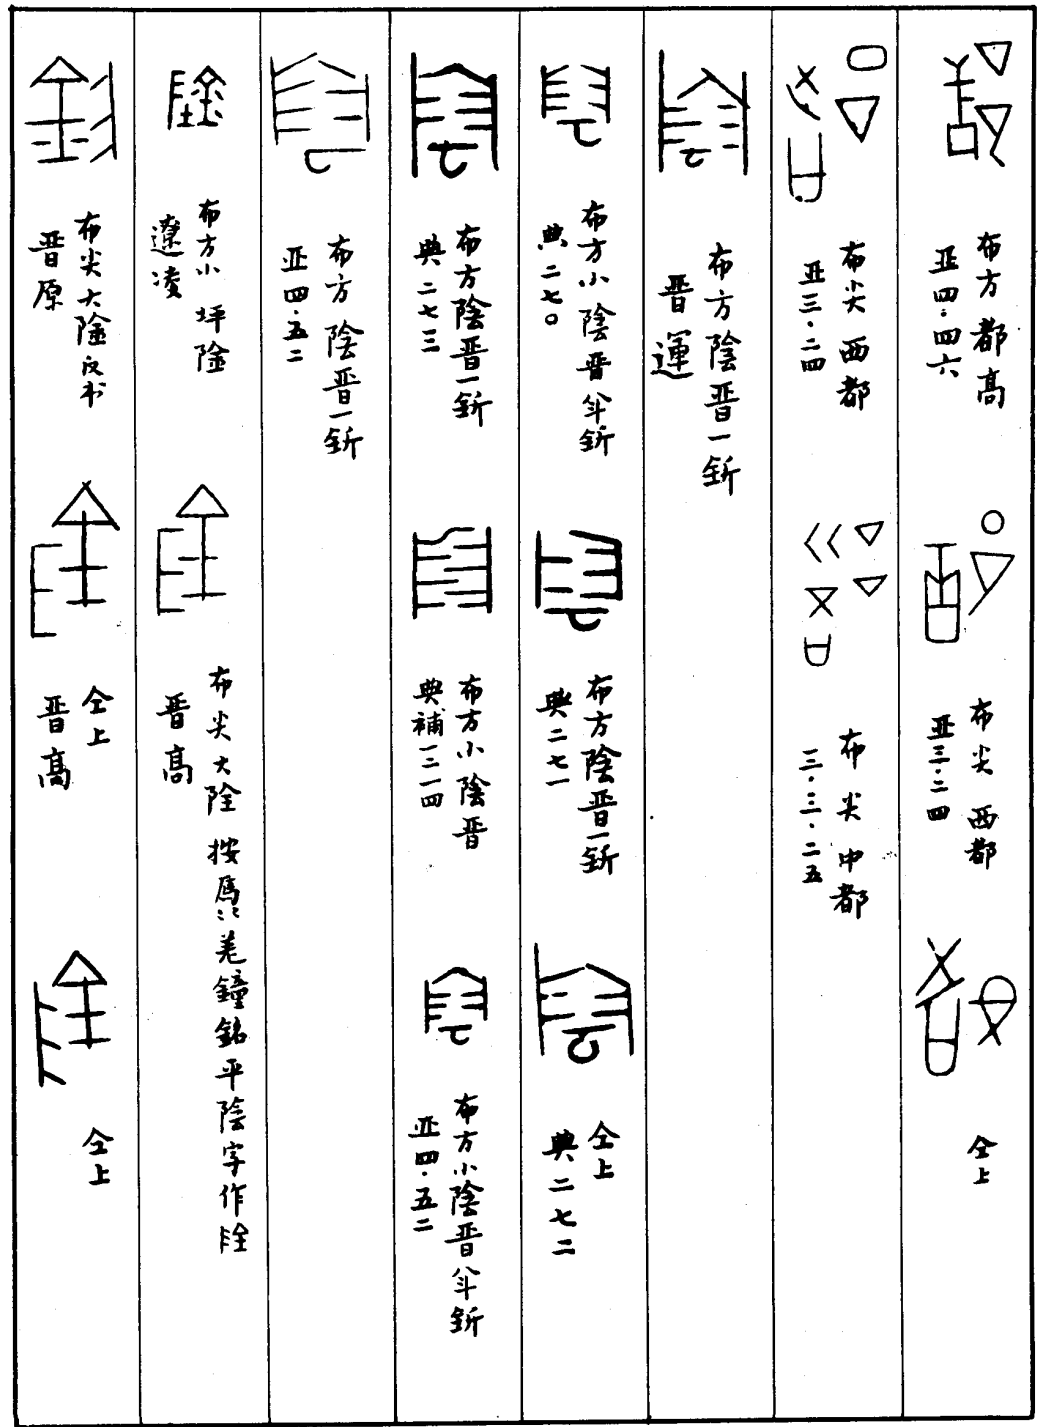 布方都高
亚四·四六
布尖西都
亚三·二四
仝上
布尖西都
亚三·二四
布尖中都
三·三·二五
布方陰晋一釿
晋運
布方小陰晋半釿
典二七〇
布方陰晋一釿
典二七一
仝上
典二七二
布方陰晋一釿
典二七三
布方小陰晋
典補
布方小陰晋半釿
亚四·五二
布方陰晋一釿
亚四·五二
布方小 坪
遼凌
布尖大 按 羌鐘銘平陰字作
晋高
布尖大 反书
晋原
仝上
晋高
仝上